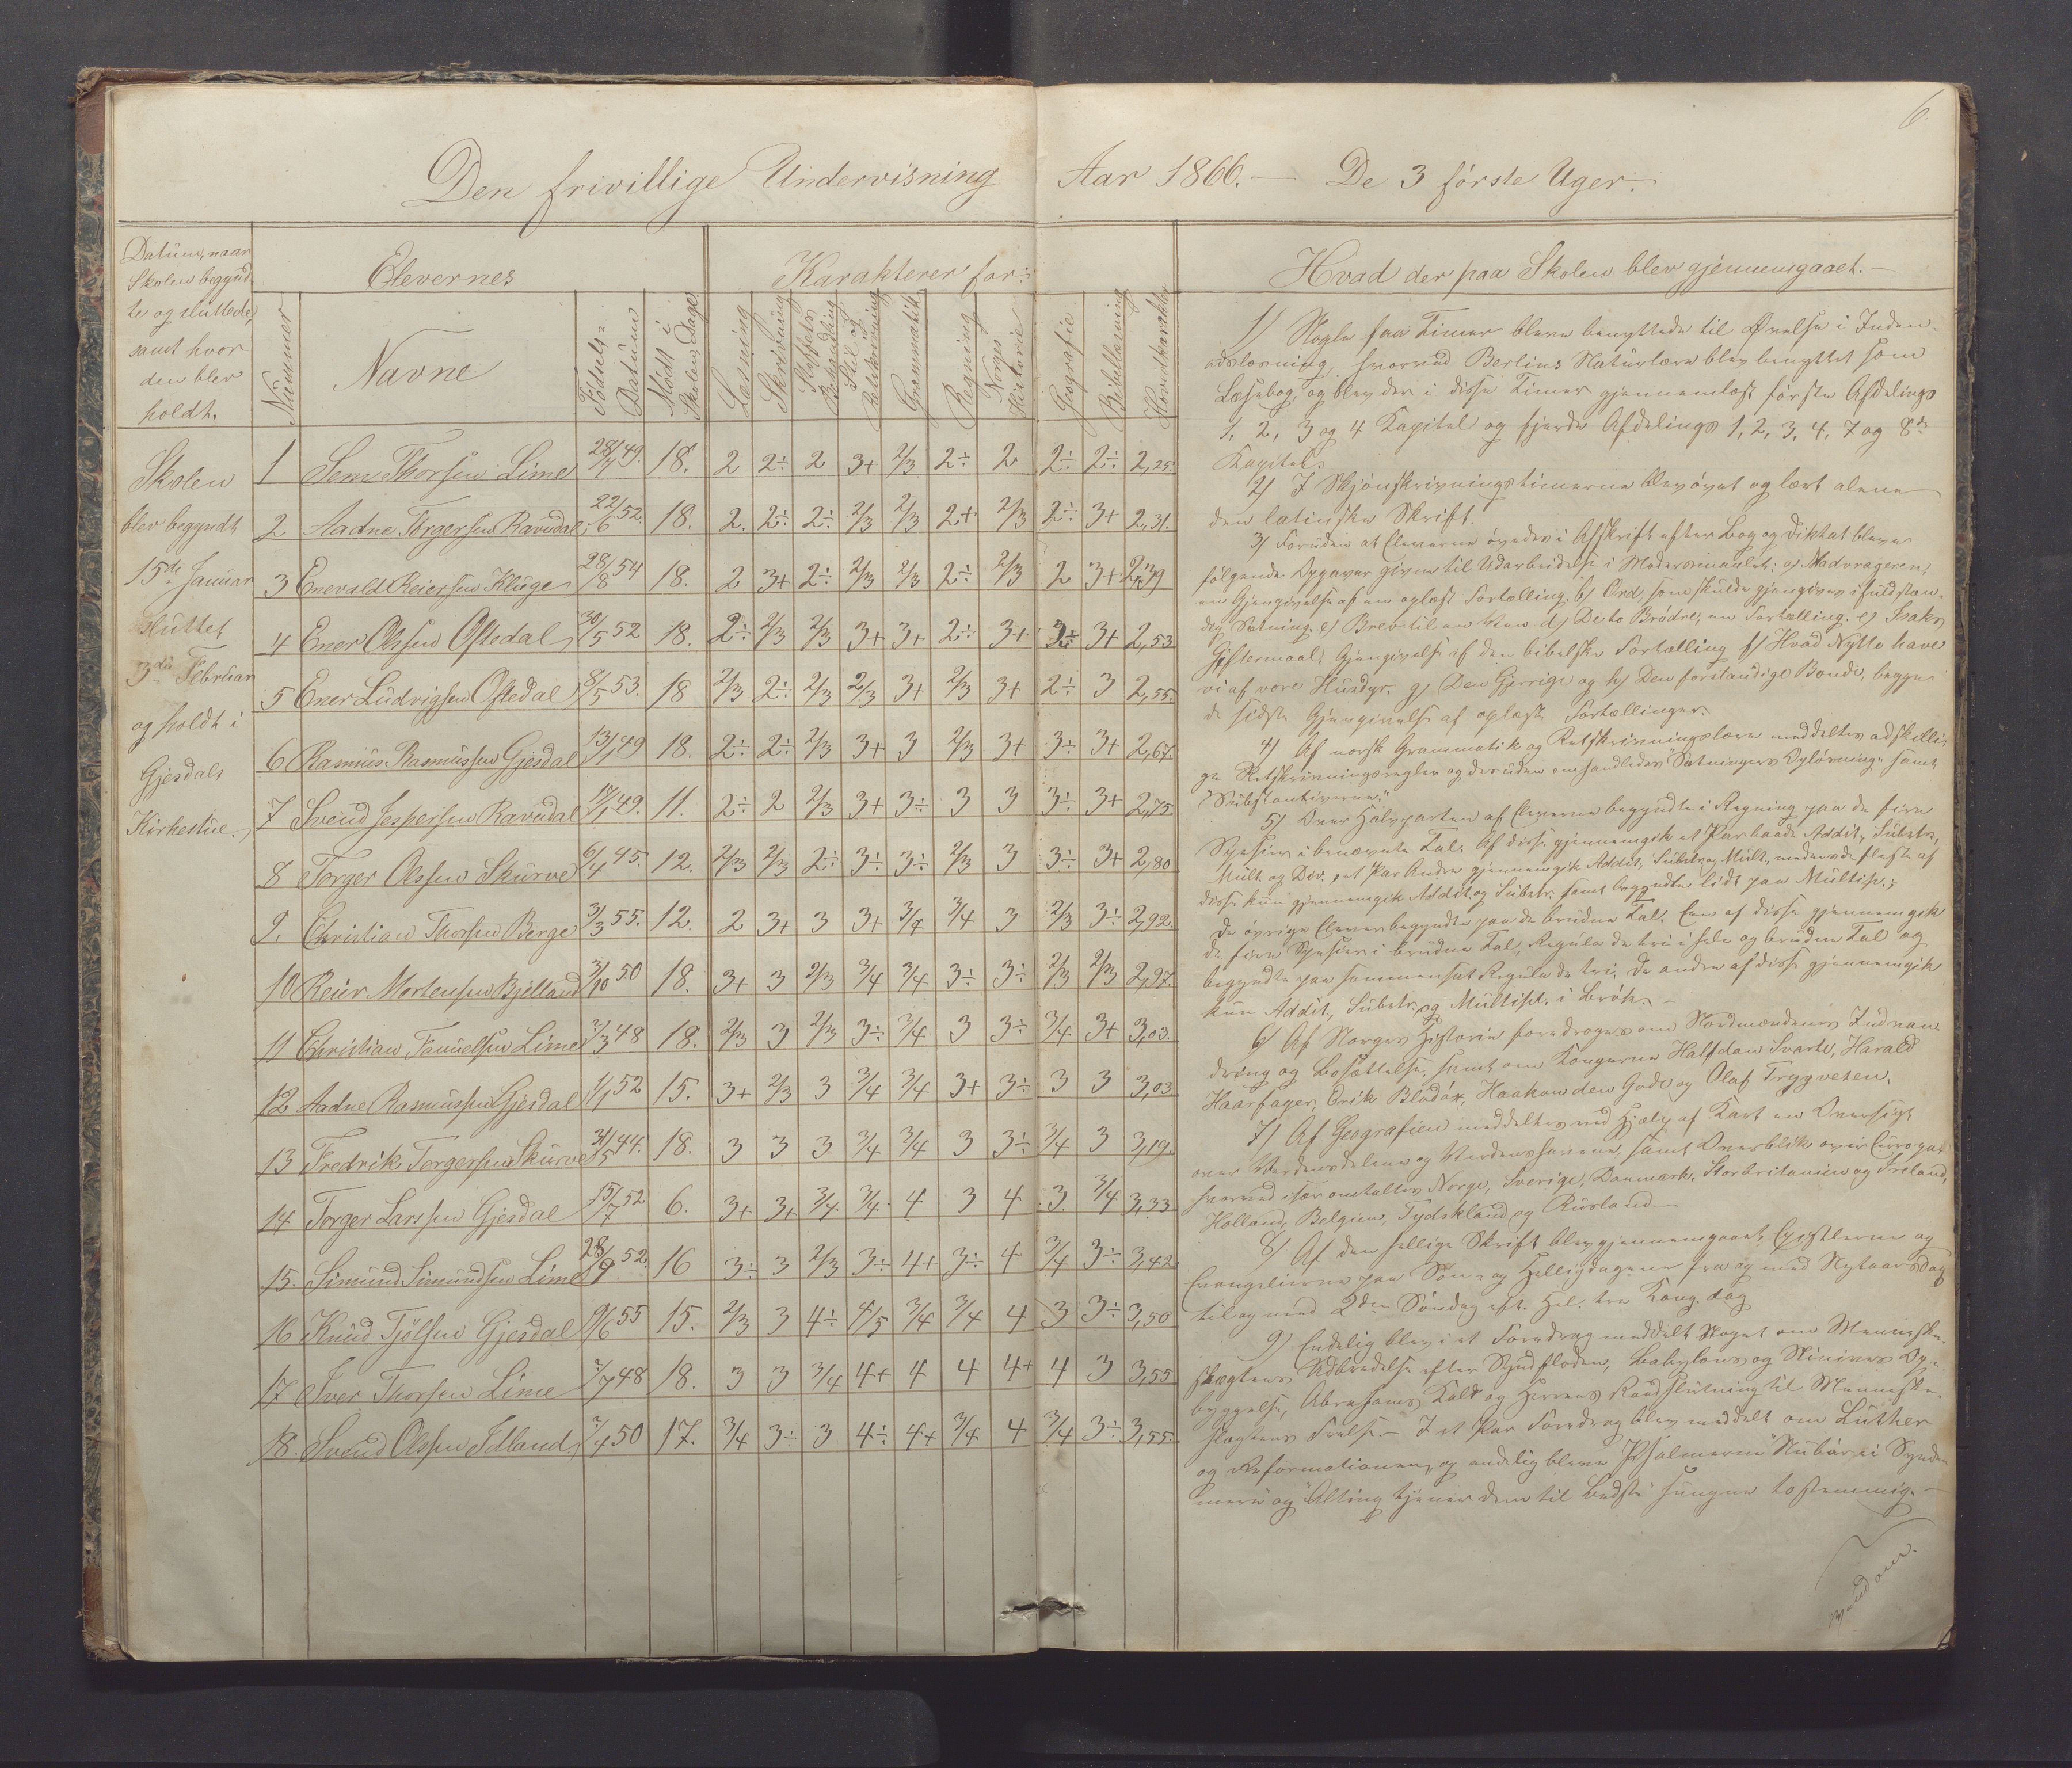 6.
Den frivillige Undervisning Aar 1866. — De 3 förste Uger. —
Datum, naar
Skolen begynd-
te og sluttede,
samt hvor
den blev
holdt.
Elevernes
Karakterer for:
Hvad der paa Skolen blev gjennemgaaet. —
Nummer
Navne
Födsels-
Datum
Mödt i
Skolen Dage
Læsning
Skrivning
Stoffets
Behandling
Stil og
Retskrivning
Grammatik
Regning
Norges
Historie
Geografie
Bibellæsning
Hovedkarakter
Skolen
blev begyndt
15de Januar
sluttet
3die Februar
og holdt i
Gjesdals
Kirkestue.
1 Sem Thorsen Lime 28/7 49. 18. 2 2÷ 2 3+ 2/3 2÷ 2 2÷ 2÷ 2,25.
2 Aadne Torgersen Ravndal 22/6 52. 18. 2. 2÷ 2÷ 2/3 2/3 2+ 2/3 2÷ 3+ 2,31.
3 Enevald Reiersen Kluge 28/8 54 18. 2 3+ 2÷ 2/3 2/3 2÷ 2/3 2 3+ 2,39
4 Ener Olsen Oftedal 30/5 52 18. 2÷ 2/3 2/3 3+ 3+ 2÷ 3+ 2÷ 3+ 2,53
5 Ener Ludvigsen Oftedal 8/5 53. 18 2/3 2÷ 2/3 2/3 3+ 2/3 3+ 2÷ 3 2,55.
6 Rasmus Rasmussen Gjesdal 13/1 49 18. 2÷ 2÷ 2/3 3+ 3 2/3 3+ 3÷ 3+ 2,67.
7 Svend Jespersen Ravndal 17/1 49. 11. 2÷ 2 2/3 3+ 3÷ 3 3 3÷ 3+ 2,75.
8 Torger Olsen Skurve 6/4 45. 12. 2/3 2/3 2÷ 3÷ 3÷ 2/3 3 3÷ 3+ 2,80
9. Christian Thorsen Berge 3/3 55. 12. 2 3+ 3 3+ 3/4 3/4 3 2/3 3÷ 2,92.
10 Reier Mortensen Bjelland 3/10 50 18. 3+ 3 2/3 3/4 3/4 3÷ 3÷ 2/3 2/3 2,97.
11 Christian Samuelsen Lime 2/3 48 18. 2/3 3 2/3 3÷ 3/4 3 3÷ 3/4 3+ 3,03.
12 Aadne Rasmussen Gjesdal 1/1 52 15. 3+ 2/3 3 3/4 3/4 3+ 3÷ 3 3 3,03
13 Fredrik Torgersen Skurve 31/5 44. 18. 3 3 3 3/4 3/4 3 3÷ 3/4 3 3,19.
14 Torger Larssen Gjesdal 15/7 52 6. 3+ 3+ 3/4 3/4 4 3 4 3 3/4 3,33
15. Simund Simundsen Lime 28/9 52. 16 3÷ 3 2/3 3÷ 4+ 3÷ 4 3/4 3÷ 3,42
16 Knud Tjölsen Gjesdal 9/6 55 15. 2/3 3 4÷ 4/5 3/4 3/4 4 3 3÷ 3,50
17 Iver Thorsen Lime 2/7 48 18. 3 3 3/4 4+ 4 4 4+ 4 3 3,55
18. Svend Olsen Idland 2/4 50 17. 3/4 3÷ 3 4÷ 4+ 3/4 4 3/4 3÷ 3,55.
1) Nogle faa Timer bleve benyttede til Øvelse i Inden-
adslæsning, hvorved Berlins Naturlære blev benyttet som
Læsebog, og blev der i disse Timer gjennemlæst förste Afdelings
1, 2, 3 og 4 Kapitel og fjerde Afdelings 1, 2, 3, 4, 7 og 8de
Kapitel.
2) I Skjönskrivningstimerne blev övet og lært alene
den latinske Skrift.
3) Foruden at Eleverne övedes i Afskrift efter Bog og Diktat bleve
fölgende Opgaver givne til Udarbeidelse i Modersmaalet: a)
en Gjengivelse af en oplæst Fortælling. b) Ord, som skulde gjengives i fuldstæn-
dig Sætning. c) Brev til en Ven. d) De to Brödre, en Fortælling. e) Isaks
Giftermaal, Gjengivelse af den bibelske Fortælling. f) Hvad Nytte have
vi af vore Husdyr. g) Den Gjerrige og h) Den forstandige Bonde, begge
de sidste Gjengivelse af oplæste Fortællinger.
4) Af norsk Grammatik og Retskrivningslære meddeltes adskilli-
ge Retskrivningsregler og desuden omhandledes "Sætningers Oplösning" samt
"Substantiverne."
5) Over Halvparten af Eleverne begyndte i Regning paa de fire
Spesies i benævnte Tal. Af disse gjennemgik et Par baade Addit., Subtr.,
Mult. og Div., et Par Andre gjennemgik Addit., Subtr. og Mult., medens de fleste af
disse kun gjennemgik Addit. og Subtr. samt begyndte lidt paa Multipl.;
de övrige Elever begyndte paa de brudne Tal. Een af disse gjennemgik
de fire Spesies i brudne Tal, Regula de tri i hele og brudne Tal og
begyndte paa sammensat Regula de tri. De andre af disse gjennemgik
kun Addit., Subtr. og Multipl. i Brök. —
6) Af Norges Historie foredroges om Nordmændenes Indvan-
dring og Bosættelse, samt om Kongerne Halfdan Svarte, Harald
Haarfager, Erik Blodöx, Haakon den Gode og Olaf Trygvesen.
7) Af Geografien meddeltes ved Hjælp af Kart en Oversigt
over Verdensdelene og Verdenshavene, samt Overblik over Europa,
hvorved især omtaltes Norge, Sverige, Danmark, Storbritanien og Irland,
Holland, Belgien, Tydskland og Rusland. —
8) Af den hellige Skrift blev gjennemgaaet Epistlerne og
Evangelierne paa Søn- og Helligdagene fra og med Nytaarsdag
til og med 2den Søndag eft. Hel. tre Kong. dag
9) Endelig blev i et Foredrag meddelt Noget om Menneske-
slægtens Udbredelse efter Syndfloden, Babylons og Ninives Op-
byggelse, Abrahams Kald og Herrens Raadslutning til Menneske-
slægtens Frelse. — I et Par Foredrag blev meddelt om Luther
og Reformationen, og endelig bleve Psalmerne
og "Alting tjener dem til Bedste" sungne tostemmig. —